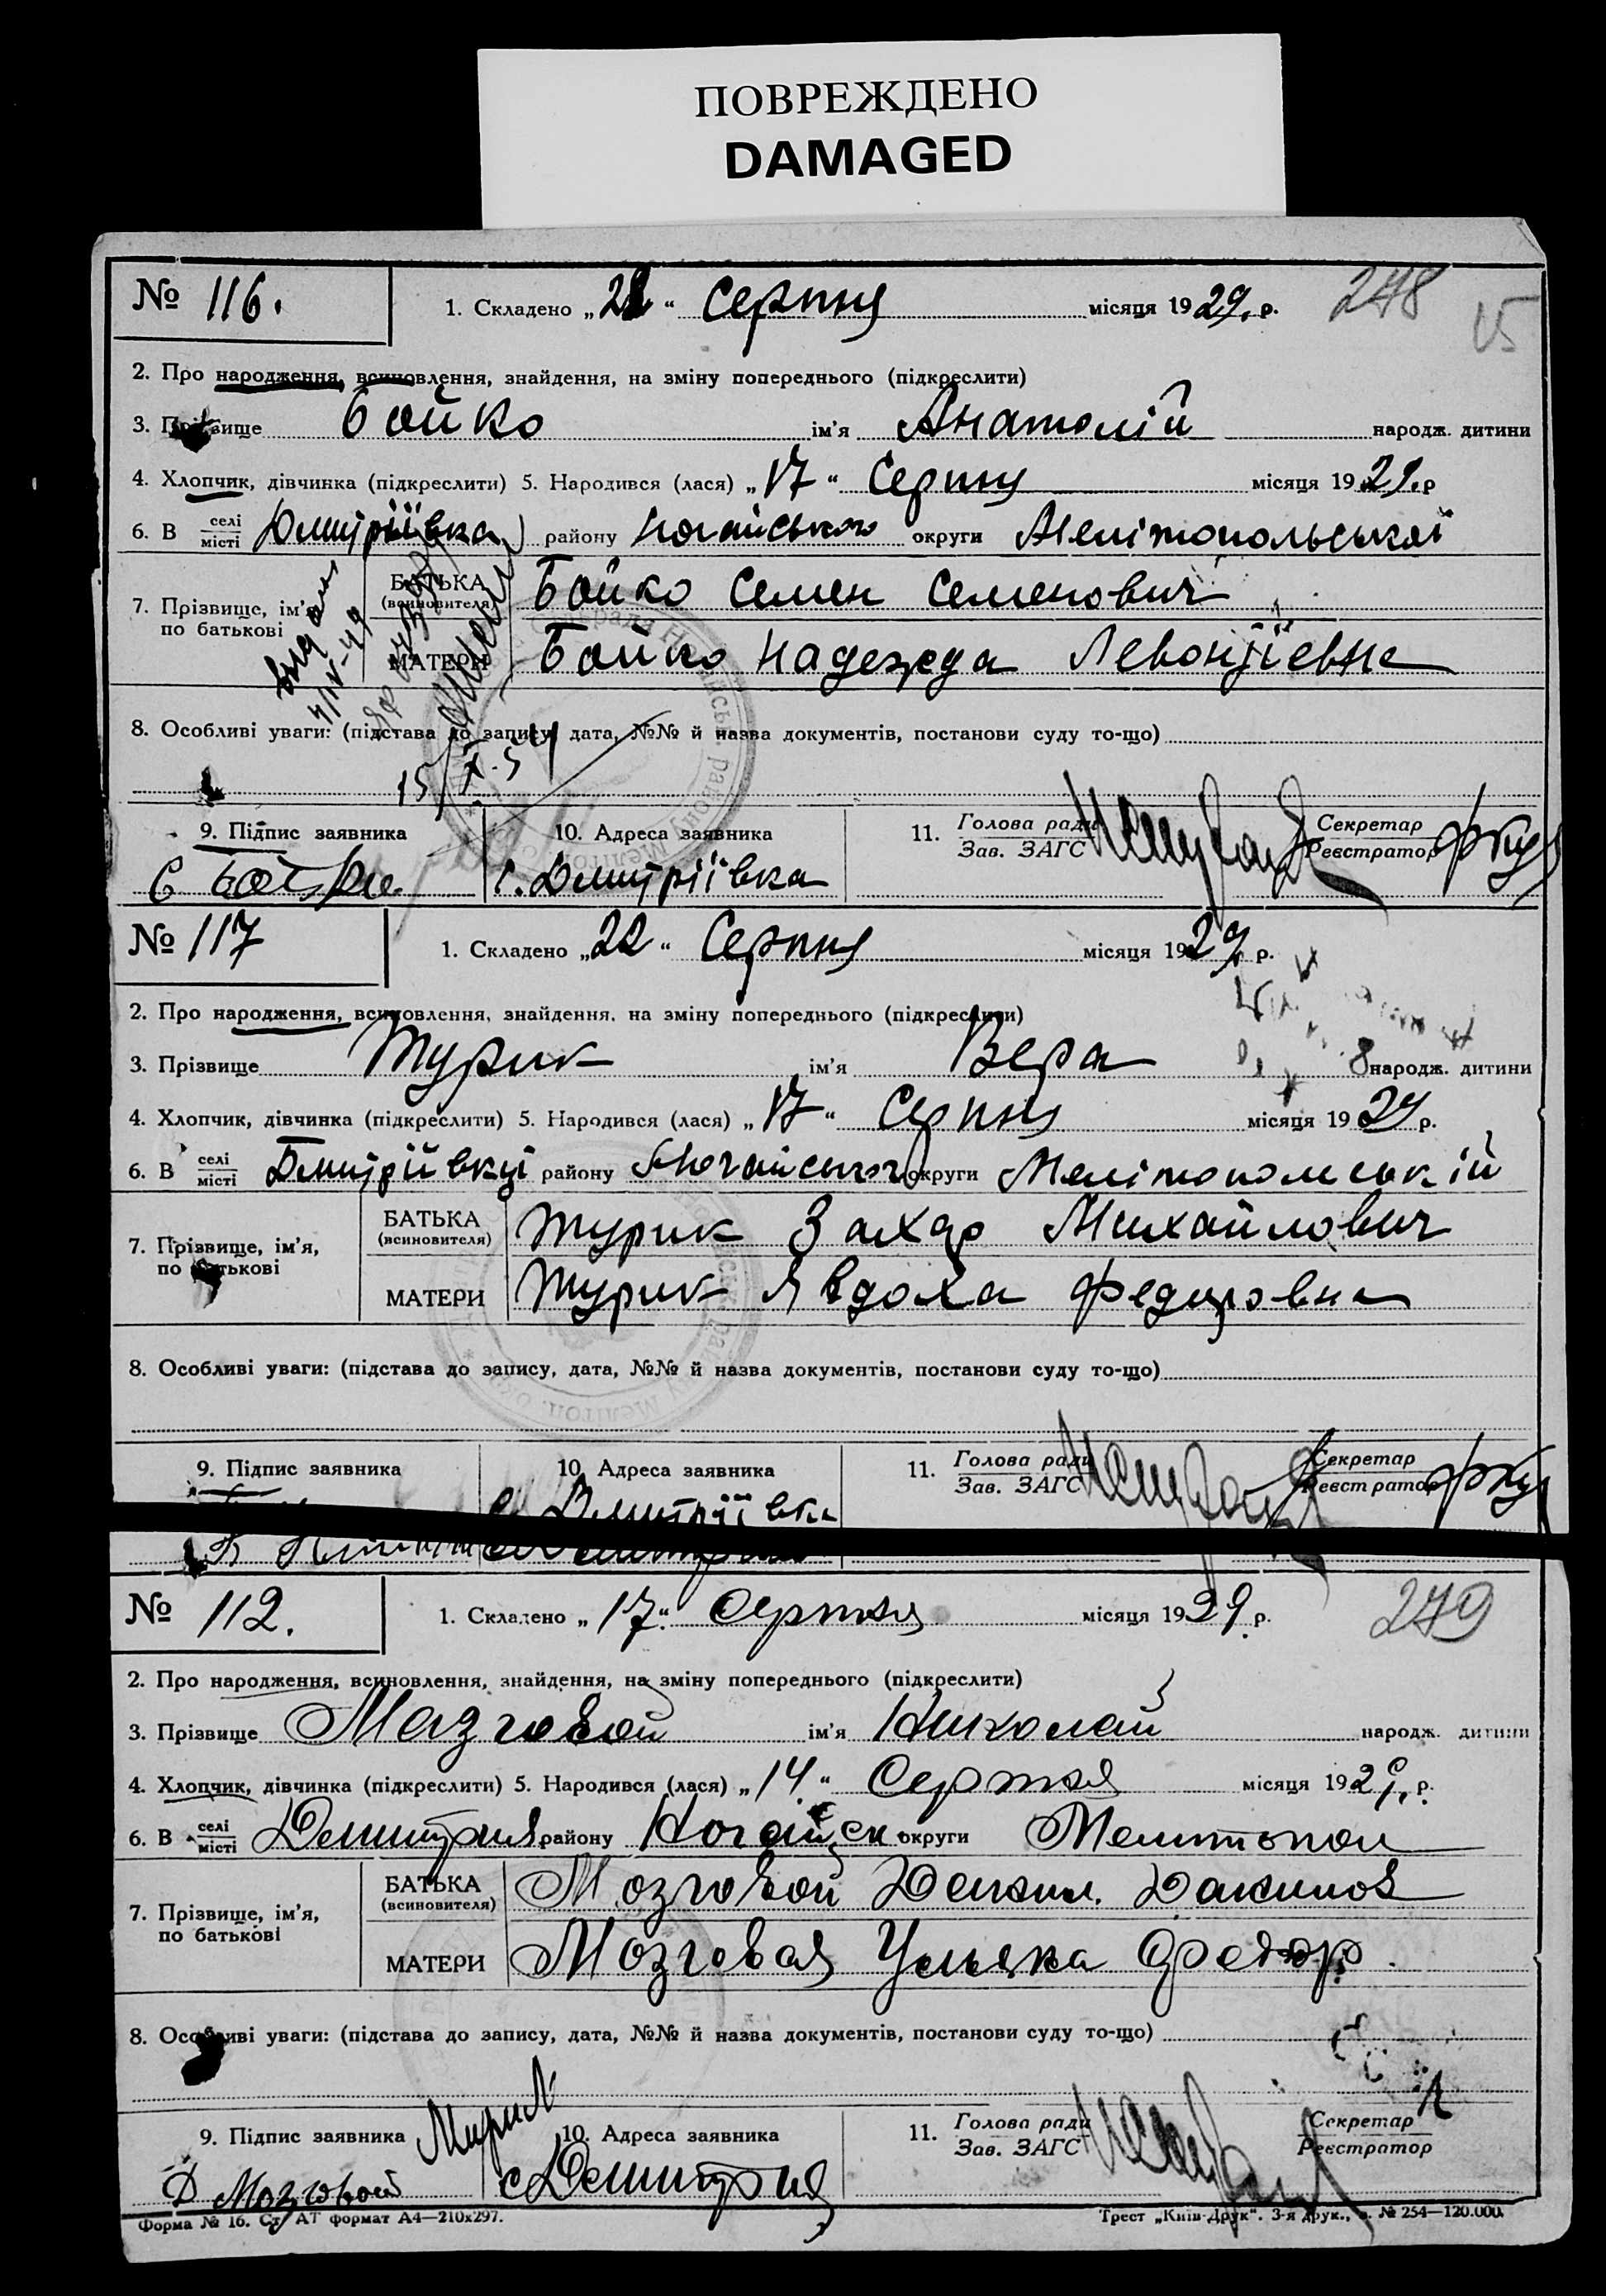 ПОВРЕЖДЕНО
DAMAGED
№ 116. 1. Складено „22“ Серпня місяця 1929. р. 278
2. Про народження, всиновлення, знайдення, на зміну попереднього (підкреслити)
3. Прізвище Бойко ім'я Анатолій народж. дитини
4. Хлопчик, дівчинка (підкреслити) 5. Народився (лася) „17“ Серпня місяця 1929. р
6. В селі місті Дмитріївка району Ногайського округи Мелітопольської
7. Прізвище, ім'я по батькові БАТЬКА (всиновителя) Бойко Семен Семенович
МАТЕРИ Бойко Надежда Левонтіївна
8. Особливі уваги: (підстава до запису, дата, №№ й назва документів, постанови суду то-що)
9. Підпис заявника 10. Адреса заявника 11. Голова ради Зав. ЗАГС Секретар Реєстратор
С Бойко с. Дмитріївка
№ 117 1. Складено „22“ Серпня місяця 1929 р.
2. Про народження, всиновлення, знайдення, на зміну попереднього (підкреслити)
3. Прізвище Турик ім'я Вера народж. дитини
4. Хлопчик, дівчинка (підкреслити) 5. Народився (лася) „17“ Серпня місяця 1929 р.
6. В селі місті Дмитрійвкці району Ногайського округи Мелітопольській
7. Прізвище, ім'я, по батькові БАТЬКА (всиновителя) Турик Захар Михайлович
МАТЕРИ Турик Явдоха Федоровна
8. Особливі уваги: (підстава до запису, дата, №№ й назва документів, постанови суду то-що)
9. Підпис заявника 10. Адреса заявника 11. Голова ради Зав. ЗАГС Секретар Реєстратор
с. Дмитріївка
№ 112. 1. Складено „17“ Серпня місяця 1929. р. 279
2. Про народження, всиновлення, знайдення, на зміну попереднього (підкреслити)
3. Прізвище Мазговой ім'я Николай народж. дитини
4. Хлопчик, дівчинка (підкреслити) 5. Народився (лася) „14“ Серпня місяця 1929. р.
6. В селі місті району Ногайск округи Мелитопол
7. Прізвище, ім'я, по батькові БАТЬКА (всиновителя) Мозговой
МАТЕРИ Мозговая Ульяна Федор.
8. Особливі уваги: (підстава до запису, дата, №№ й назва документів, постанови суду то-що)
9. Підпис заявника 10. Адреса заявника 11. Голова ради Зав. ЗАГС Секретар Реєстратор
Д Мозговой
Форма № 16. Ст. АТ формат А4—210х297. Трест „Київ-Друк“. 3-я друк., № 254—120.000.